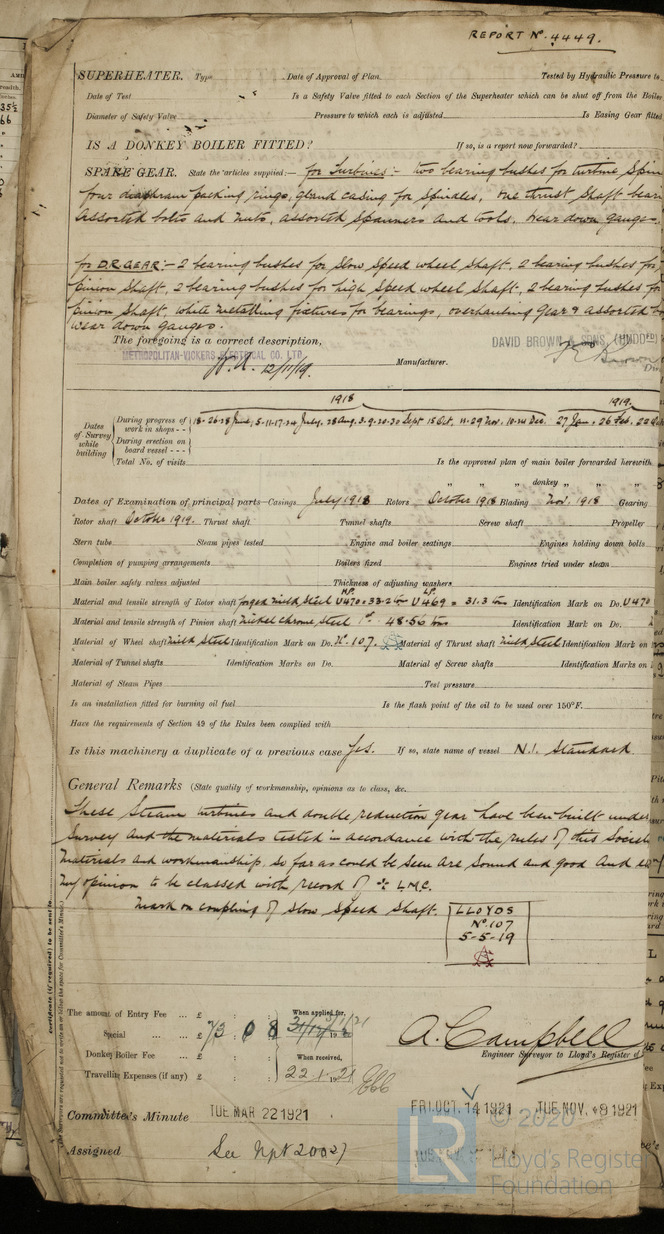 REPORT No. 4449.
SUPERHEATER. Type Date of Approval of Plan. Tested by Hydraulic Pressure to
Date of Test Is a Safety Valve fitted to each Section of the Superheater which can be shut off from the Boiler
Diameter of Safety Valve Pressure to which each is adjusted Is Easing Gear fitted
IS A DONKEY BOILER FITTED? If so, is a report now forwarded?
SPARE GEAR. State the articles supplied:— for Turbines:- two bearing bushes for turbine Spin
four diaphram packing rings, gland casing for spindles, one thrust shaft bear
assorted bolts and nuts, assorted spanners and tools. Wear down gauge.
for D.R. GEAR:- 2 bearing bushes for slow speed wheel shaft, 2 bearing bushes for
pinion shaft, 2 bearing bushes for high speed wheel shaft, 2 bearing bushes for
pinion shaft, white metalling fixtures for bearings, overhauling gear & assorted
wear down gauges.
The foregoing is a correct description,
DAVID BROWN & SONS, (HUDD'D)
METROPOLITAN-VICKERS ELECTRICAL CO. LTD.
12/11/19. Manufacturer.
1918 1919.
Dates of Survey while building
During progress of work in shops - - 18-26-28 June, 5-11-17-24 July, 28 Aug. 3-9-20-30 Sept 15 Oct, 11-29 Nov. 10-24 Dec. 27 Jan. 26 Feb. 22
During erection on board vessel - - -
Total No. of visits Is the approved plan of main boiler forwarded herewith
" " " donkey " " "
Dates of Examination of principal parts—Casings July 1918 Rotors October 1918 Blading Nov. 1918 Gearing
Rotor shaft October 1919. Thrust shaft Tunnel shafts Screw shaft Propeller
Stern tube Steam pipes tested Engine and boiler seatings Engines holding down bolts
Completion of pumping arrangements Boilers fixed Engines tried under steam
Main boiler safety valves adjusted Thickness of adjusting washers
H.P. L.P.
Material and tensile strength of Rotor shaft forged mild steel U470 = 33.2 tons U469 = 31.3 tons Identification Mark on Do. U470
Material and tensile strength of Pinion shaft nickel chrome steel 48.56 tons Identification Mark on Do.
Material of Wheel shaft mild steel Identification Mark on Do. No. 107. Material of Thrust shaft mild steel Identification Mark on
Material of Tunnel shafts Identification Marks on Do. Material of Screw shafts Identification Marks on
Material of Steam Pipes Test pressure
Is an installation fitted for burning oil fuel Is the flash point of the oil to be used over 150°F.
Have the requirements of Section 49 of the Rules been complied with
Is this machinery a duplicate of a previous case Yes. If so, state name of vessel N.1. Standard
General Remarks (State quality of workmanship, opinions as to class, &c.
These Steam turbines and double reduction gear have been built under
survey and the materials tested in accordance with the rules of this Societ
materials and workmanship, so far as could be seen are sound and good and
my opinion to be classed with record of L.M.C.
Mark on coupling of slow speed shaft.
LLOYDS
No. 107
5-5-19
Certificate (if required) to be sent to
The amount of Entry Fee ... £ : : When applied for,
Special ... £ 73 0 8
Donkey Boiler Fee ... £ : : When received,
Travelling Expenses (if any) £ : : 22.1.21
A. Campbell
Engineer Surveyor to Lloyd's Register of
Committee's Minute TUE. MAR. 22 1921 FRI. OCT. 14 1921 TUE. NOV. 8 1921
Assigned See Npt 20027
LR
© 2020
Lloyd's Register
Foundation